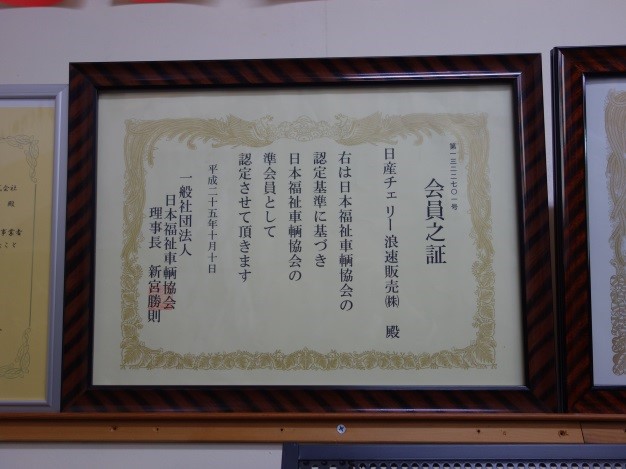 第一三二二七〇一号
会員之証
日産チェリー浪速販売㈱ 殿
右は日本福祉車輌協会の
認定基準に基づき
日本福祉車輌協会の
準会員として
認定させて頂きます
平成二十五年十月十日
一般社団法人
日本福祉車輌協会
理事長 新宮勝則
式会社
殿
事業者
こと